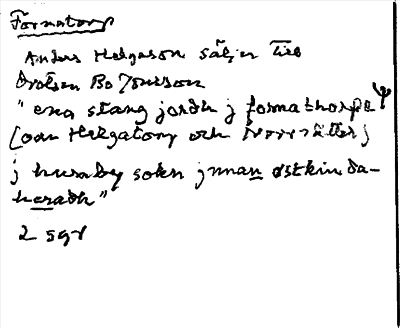 Formatorp
Anders Helgason säljer till
drotsen Bo Jonsson
"ena stang jordh j formathorpe
(oan Helgatorp och Norrsätter)
j huraby sokn jnnan østkinda-
heradh"
2 sgr